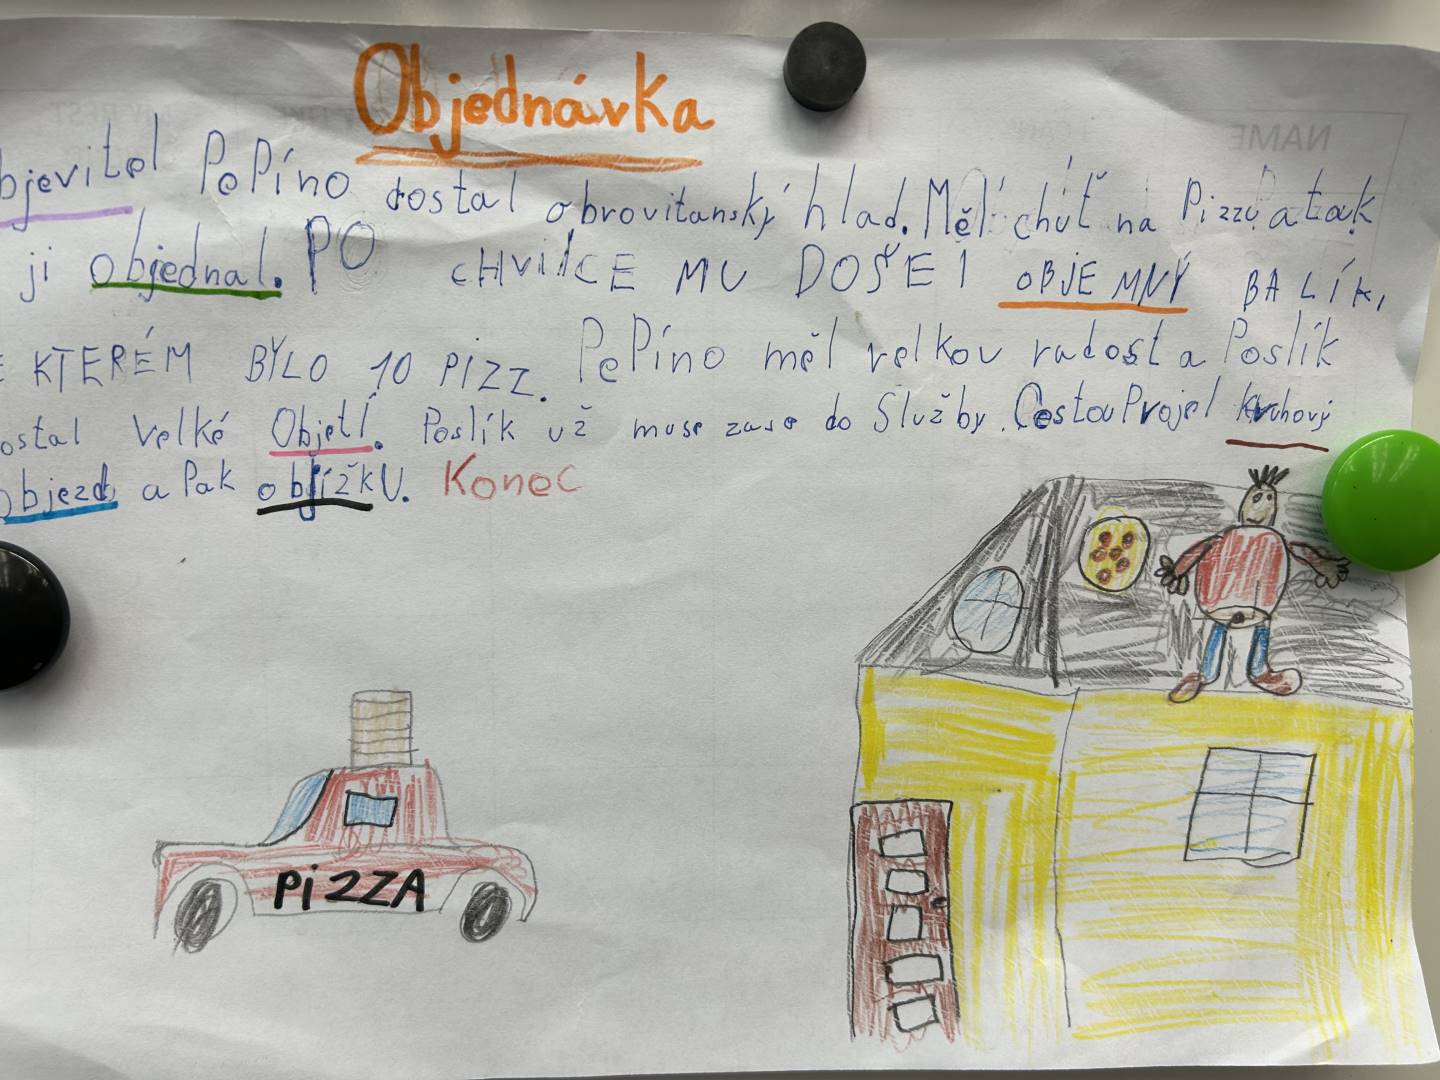 Objednávka
bjevitel PePíno dostal obrovitanský hlad. Měl chúť na Pizzu a tak
ji objednal. PO CHVilCE MU DOŠEl OBJEMNÝ BALÍK,
E KTERÉM BYLO 10 PIZZ. PePíno měl velkou radost a Poslík
ostal Velké Objetí. Poslík už muse zase do Služby. Cestou Projel kruhový
objezd a Pak objížkU. Konec
PiZZA
NAME